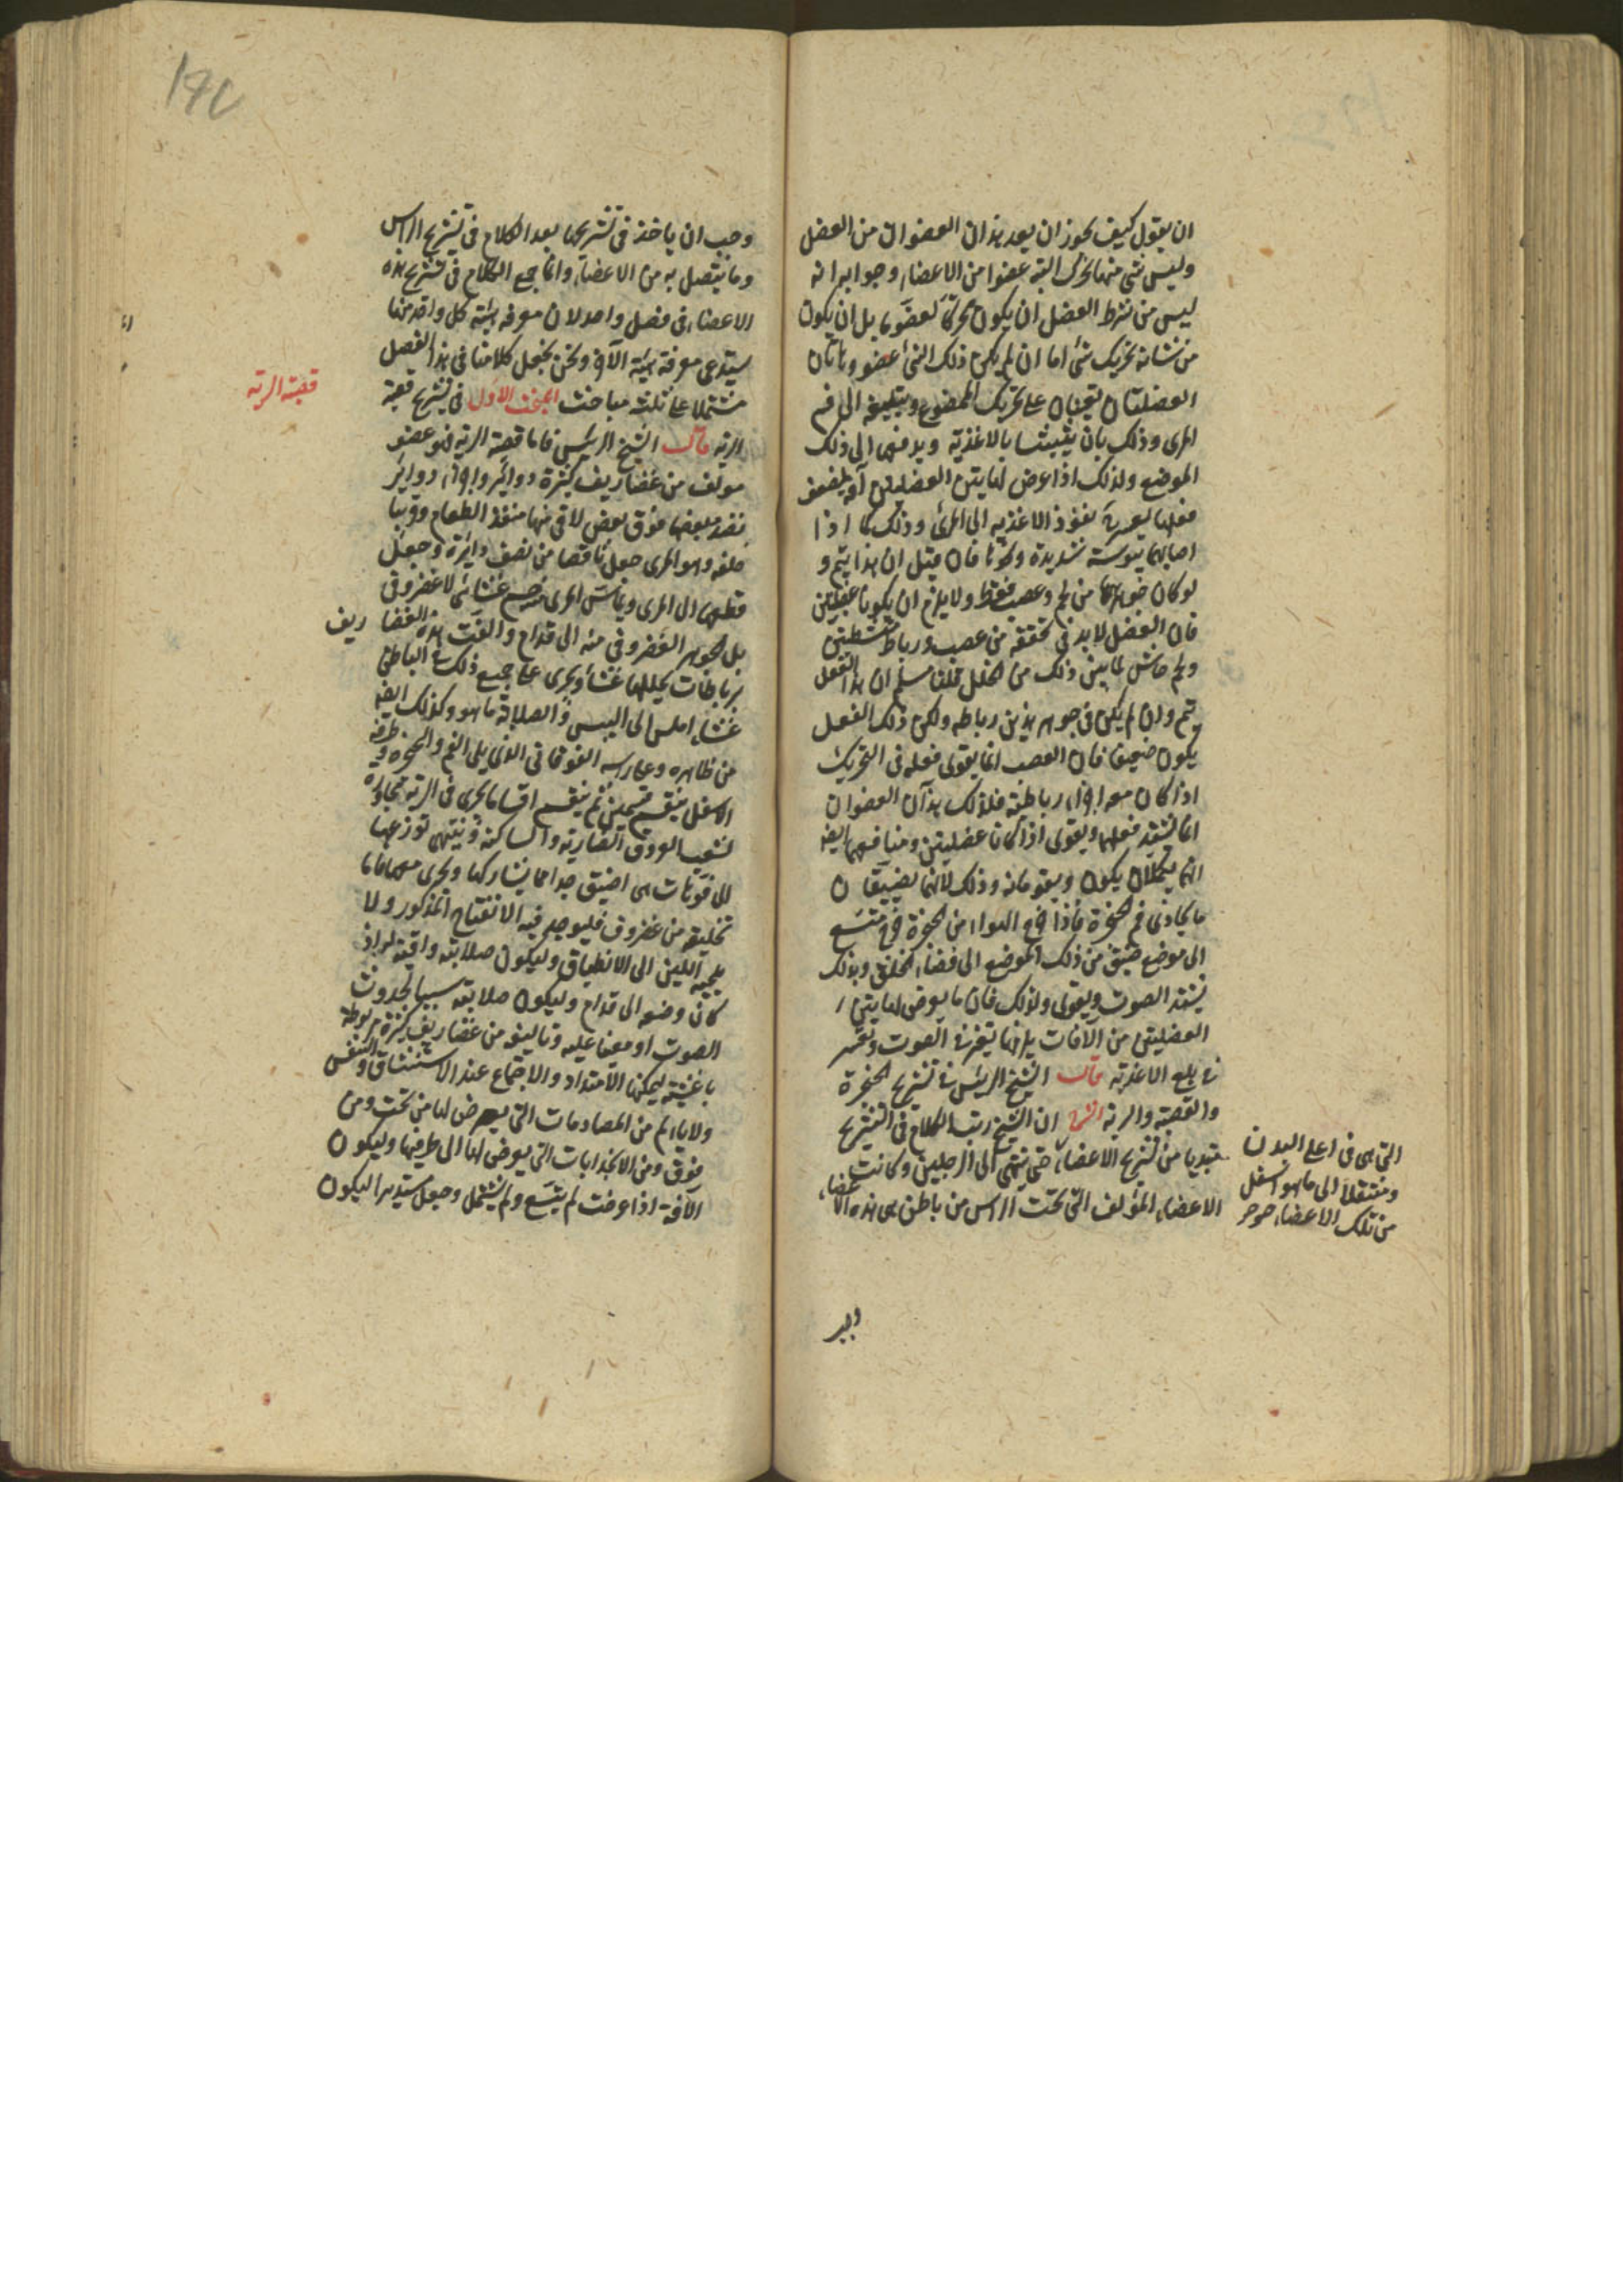 ان يقول كيف يجوز ان يعد هذان العضوان من العضل
وليس شئ منهما يحرك البتة عضوا من الاعضاء وجوابه انه
ليس من شرط العضل ان يكون محركا لعضو ما بل ان يكون
من شانه تحريك شئ اما ان لم يكن ذلك الشئ عضو وهاتان
العضلتان تعينان على تحريك الممضوغ وتبليغه الى فم
المرى وذلك بان يتشبثا بالاغذية ويدفعها الى ذلك
الموضع ولذلك اذا عرض لهاتين العضلتين آفة يضعف
فعلهما يعسر نفوذ الاغذيه الى المرئ وذلك كما اذا
اصابهما يبوسة شديدة ونحوها فان قيل ان هذا يتم و
لو كان جوهرهما من لحم وعصب فقط ولا يلزم ان يكونا عضلتين
فان العضل لا بد فى تحققه من عصب ورباط متشظيين
ولحم حاش لما بين ذلك من الخلل قلنا مسلم ان هذا الفعل
يتم وان لم يكن فى جوهر هذين رباطه ولكن ذلك الفعل
يكون ضعيفا فان العصب انما يقوى فعله فى التحريك
اذا كان معه اجزاء رباطية فلذلك هذان العضوان
انما يشتد فعلهما ويقوى اذا كانا عضليتين ومنافعهما ايضا
انهما يكملان يكون ويقومانه وذلك لانهما يضيقان
ما يحاذى فم الحنجرة فاذا خرج الهواء من الحنجرة خرج متسع
الى موضع ضيق من ذلك الموضع الى فضاء الحلق وبذلك
يشتد الصوت ويقوى ولذلك فان ما يعرض لهاتين
العضلتين من الآفات يلزمها تغير فى الصوت وتعسر
فى بلع الاغذية قال الشيخ الرئيس فى تشريح الحنجرة
والقصبة والرية الشرح ان الشيخ رتب الكلام فى التشريح
مبتديا من تشريح الاعضاء حتى ينتهى الى الرجلين وكانت
الاعضاء المؤلف التى تحت الراس من باطن هى هذه الاعضاء
التى هى فى اعلى البدن
ومنتقلا الى ما هو اسفل
من تلك الاعضاء
وجب
وجب ان ياخذ فى تشريحها بعد الكلام فى تشريح الراس
وما يتصل به من الاعضاء وانما جمع الكلام فى تشريح هذه
الاعضاء فى فصل واحد لان معرفة هيئة كل واحد منها
يستدعى معرفة هيئة الآخر ونحن نجعل كلامنا فى هذا الفصل
مشتملا على ثلثة مباحث المبحث الاول فى تشريح قصبة
قصبة الرية
الرية قال الشيخ الرئيس فاما قصبة الرية فهو عضو
مولف من غضاريف كثيرة دواير واجزاء دواير
نضد بعضها فوق بعض لاقى منها منفذ الطعام وقربها
خلفه وهو المرى جعل ناقصا من نصف دايرة وجعل
قطعه الى المرى ويماس المرى منه جسم غشائى لا غضروفى
بل الجوهر الغضروفى منه الى قدام والفت هذه الغضاريف
برباطات يجللها غشاء ويجرى على جميع ذلك من الباطن
غشاء املس الى اليبس والصلابة ما هو وكذلك ايضا
من ظاهره وعلى راسه الفوقانى الذى يلى الفم والحنجرة وطرفه
الاسفل ينقسم قسمين ثم ينقسم اقساما تجرى فى الرية مجاورة
لشعب العروق الضاربة والساكنة وينتهى توزعها
الى فوهات هى اضيق جدا مما يشاركها وتجرى معها فاما
تخليقه من غضروف فليوجد فيه الانفتاح المذكور ولا
يلجئه اللين الى الانطباق وليكون صلابته واقية له اذ
كان وضعه الى قدام وليكون صلابته سببا لحدوث
الصوت او معينا عليه وتاليفه من غضاريف كثيرة مربوطة
باغشية ليمكنها الامتداد والاجتماع عند الاستنشاق والتنفس
ولا يألم من المصادمات التى يعرض لها من تحت ومن
فوق ومن الانجذابات التى يعرض لها الى طرفيها وليكون
الآفة اذا عرضت لم يتسع ولم يشتمل وجعل مستديرا ليكون